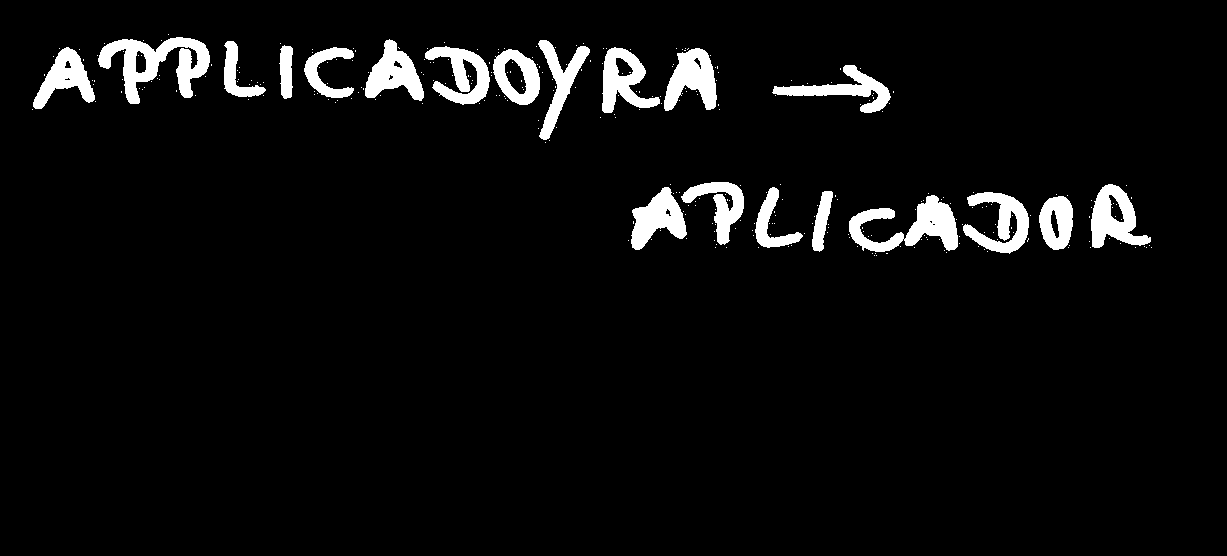 APPLICADOYRA →
APLICADOR